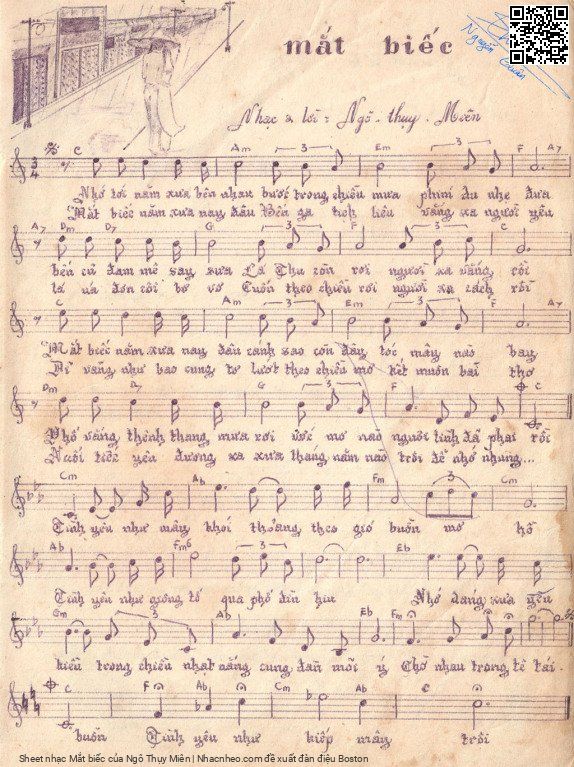 mắt biếc
Nguyễn
Nhạc & lời : Ngô - thụy - Miên
C Am Em F A7
Nhớ tới năm xưa bên nhau bước trong chiều mưa phím du nhẹ đưa
Mắt biếc năm xưa nay đâu Bến ga tịch liêu vắng xa người yêu
A7 Dm D7 G F C
bến cũ đam mê say sưa Lá Thu còn rơi người xa vắng rồi
lá úa đơn côi bơ vơ Cuốn theo chiều rơi người xa cách rồi
C Am Em F A7
Mắt biếc năm xưa nay đâu cánh sao còn đây tóc mây nào bay
Dĩ vãng như bao cung tơ lướt theo chiều mơ kết muôn bài thơ
Dm D7 G F G C C
Phố vắng thênh thang mưa rơi ước mơ nào người tình đã phai rồi
Nuối tiếc yêu đương xa xưa tháng năm nào trôi để nhớ nhung...
Cm Ab Cm Fm
Tình yêu như mây khói thoáng theo gió buồn mơ hồ
Ab Fm6 Eb
Tình yêu như giông tố qua phố đìu hiu Nhớ dáng xưa yêu
Gm Ab Eb Fm Eb
kiều trong chiều nhạt nắng cung đàn mỗi ý Chờ nhau trong tê tái.
C F Ab Cm Ab C
buồn Tình yêu như kiếp mây trôi
Sheet nhạc Mắt biếc của Ngô Thụy Miên | Nhacnheo.com đề xuất đàn điệu Boston